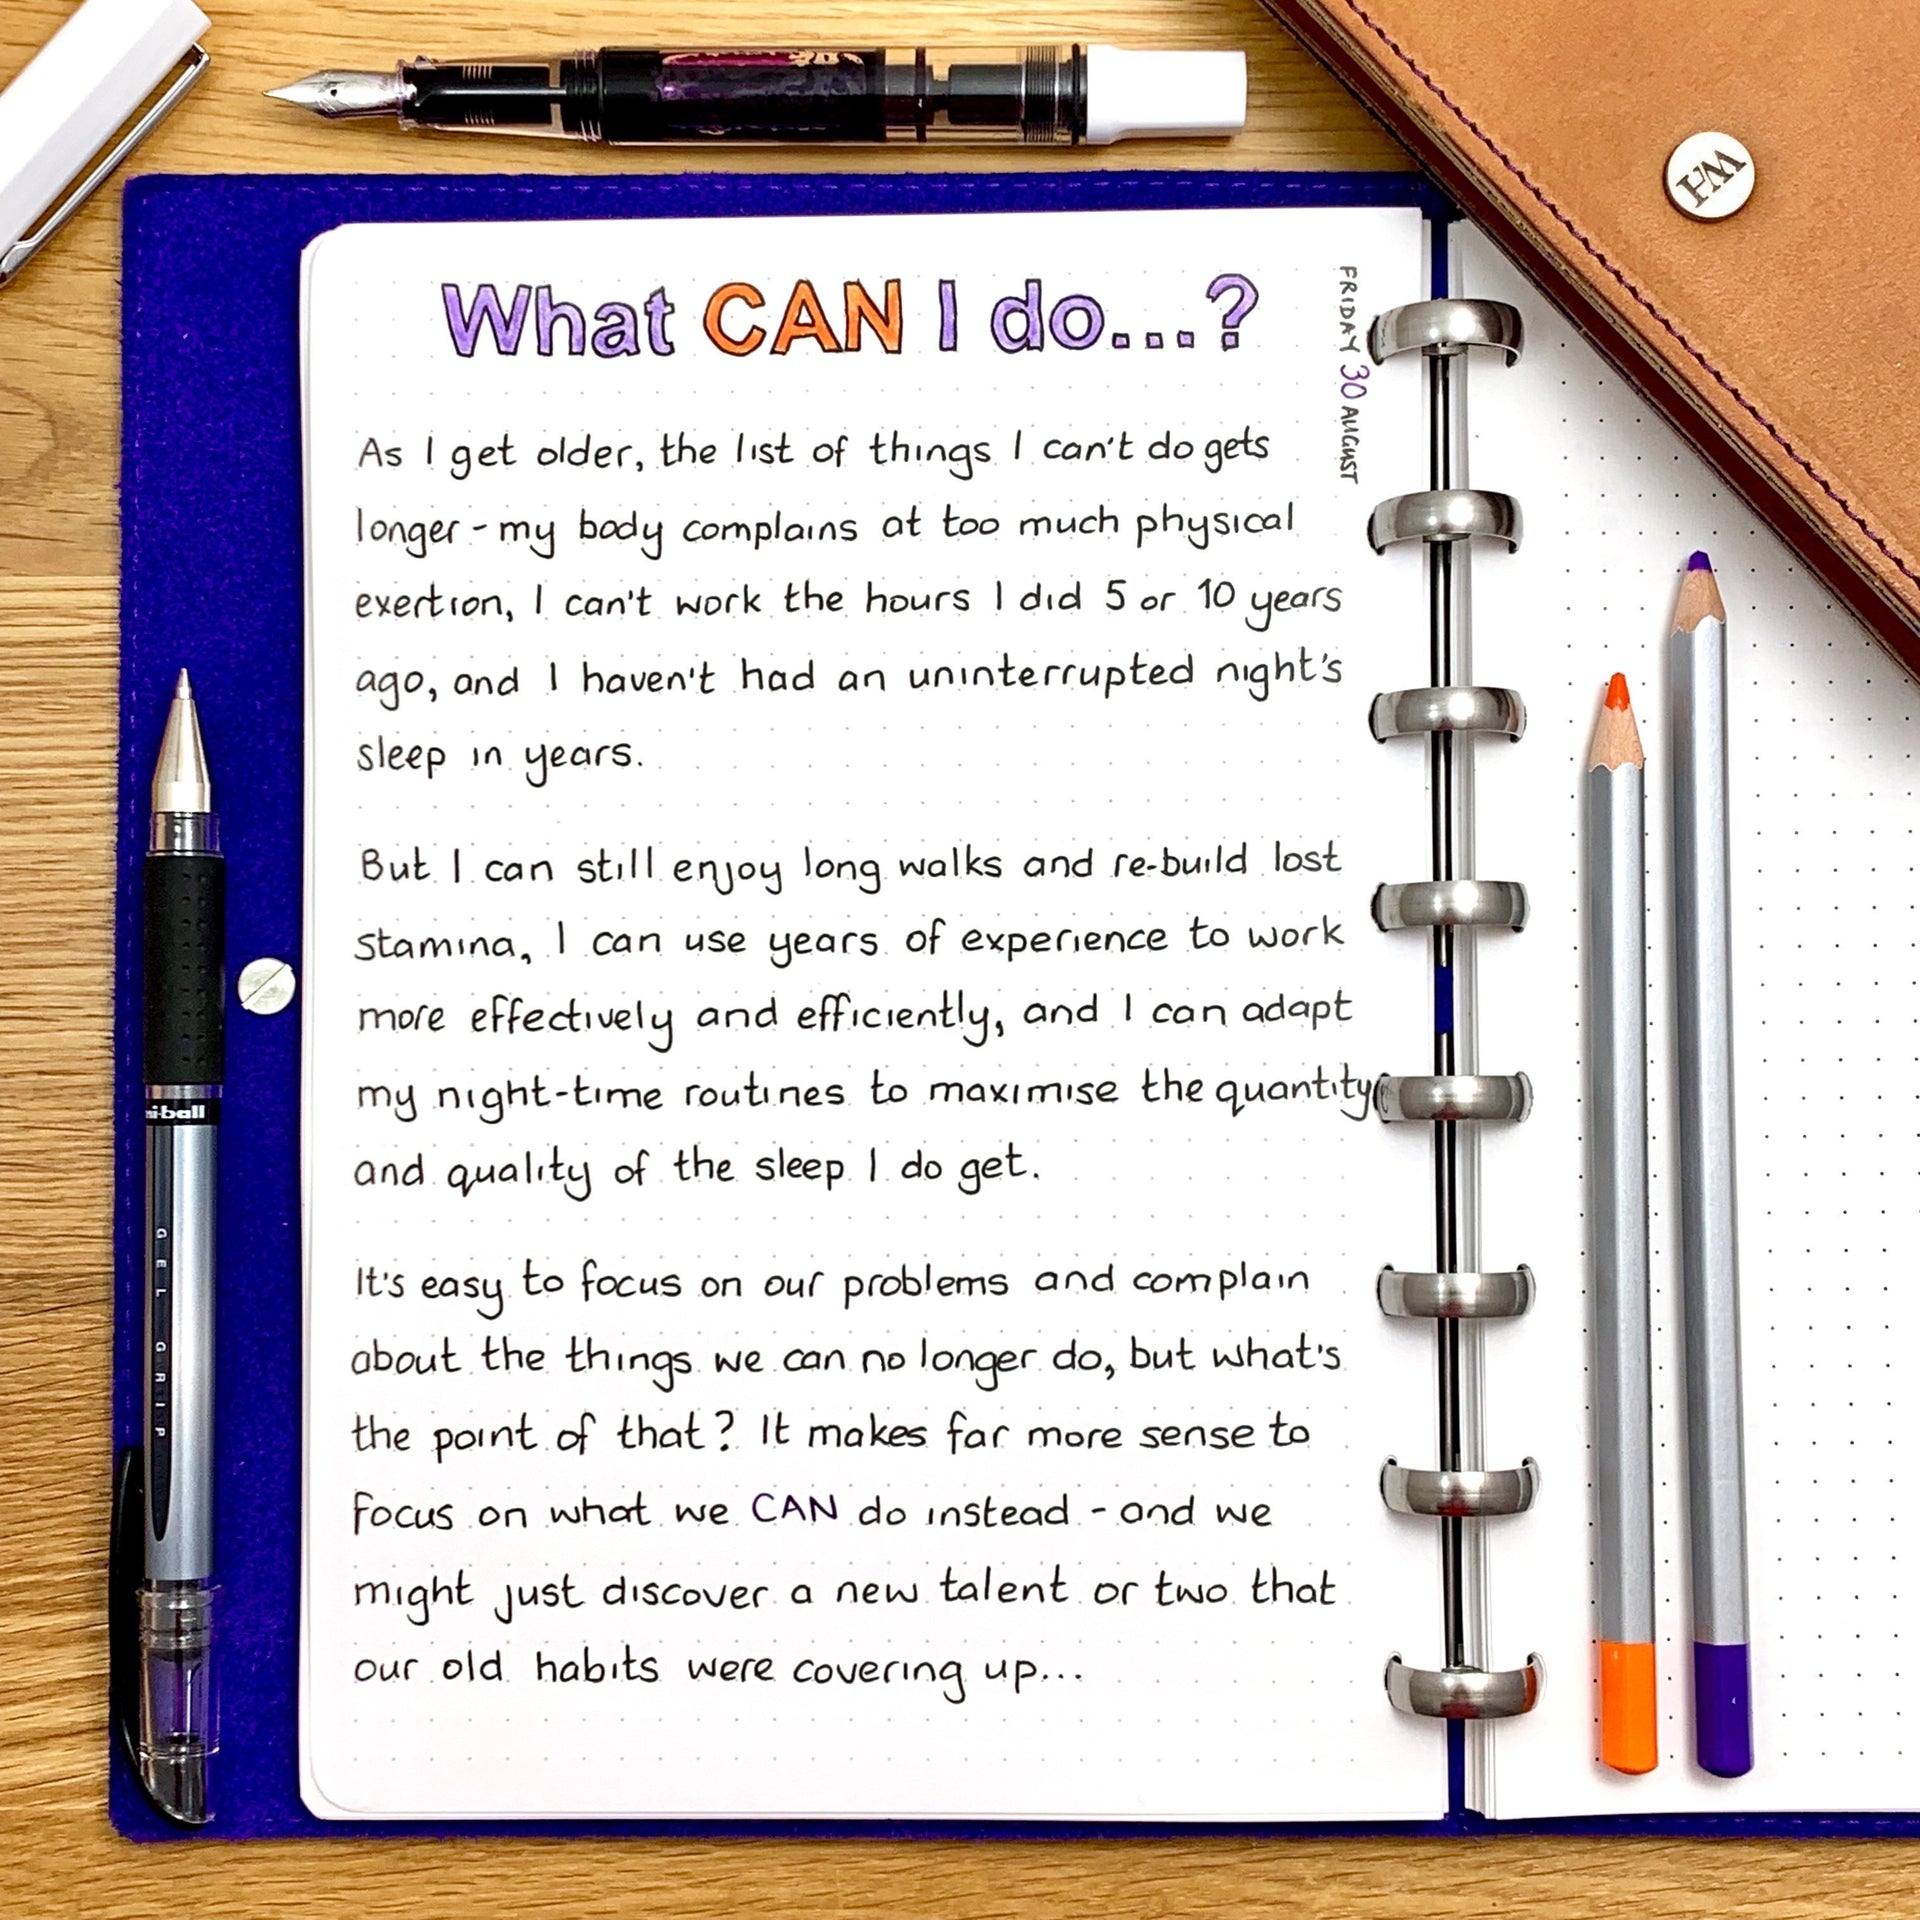 What CAN I do...?
FRIDAY 30 AUGUST
As I get older, the list of things I can't do gets
longer - my body complains at too much physical
exertion, I can't work the hours I did 5 or 10 years
ago, and I haven't had an uninterrupted night's
sleep in years.
But I can still enjoy long walks and re-build lost
stamina, I can use years of experience to work
more effectively and efficiently, and I can adapt
my night-time routines to maximise the quantity
and quality of the sleep I do get.
It's easy to focus on our problems and complain
about the things we can no longer do, but what's
the point of that? It makes far more sense to
focus on what we CAN do instead - and we
might just discover a new talent or two that
our old habits were covering up...
ni-ball
GEL GRIP